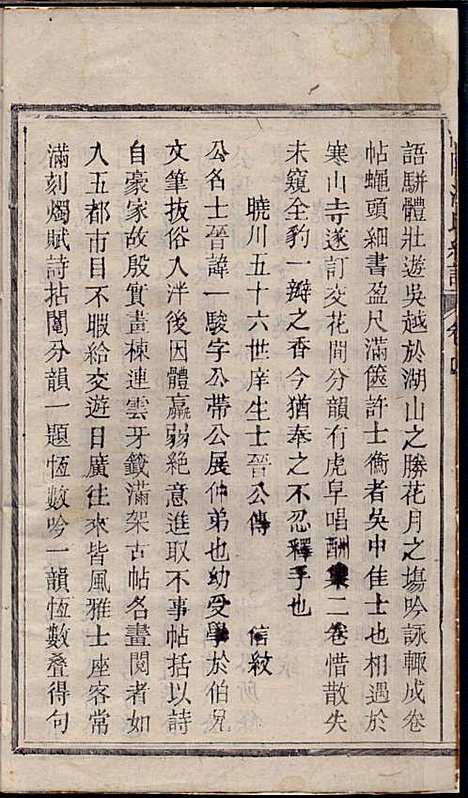 語駢體壯遊吳越於湖山之勝花月之塲吟詠輙成卷
帖蠅頭細書盈尺滿篋許士衡者吳中佳士也相遇於
寒山寺遂訂交花間分韻有虎阜唱酬集二卷惜散失
未窺全豹一瓣之香今猶奉之不忍釋手也
曉川五十六世庠生士晉公傳　　信紋
公名士晉諱一駿字公帶公展仲弟也幼受學於伯兄
文筆拔俗入泮後因體羸弱絶意進取不事帖括以詩
自豪家故殷實畫棟連雲牙籤滿架古帖名畫閱者如
入五都市目不暇給交遊日廣往來皆風雅士座客常
滿刻燭賦詩拈鬮分韻一題恆數吟一韻恆數叠得句